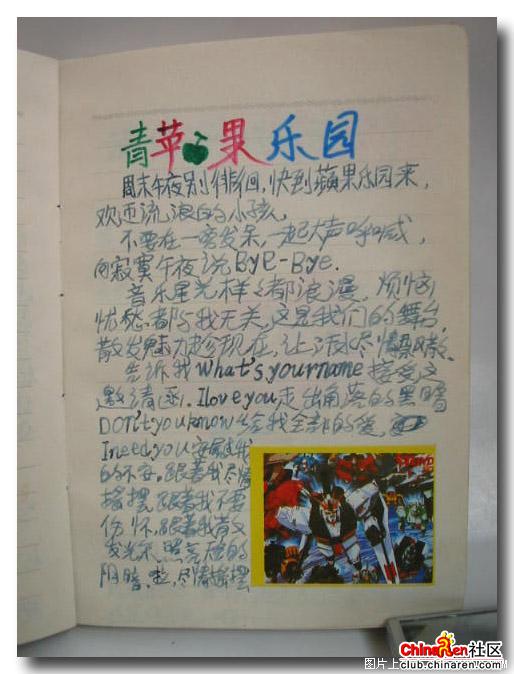 青苹果乐园
周末午夜别徘徊,快到蘋果乐园来,
欢迎流浪的小孩,
不要在一旁发呆,一起大声呼喊,
向寂寞午夜说Bye-Bye.
音乐星光样样都浪漫,烦恼
忧愁都与我无关,这是我们的舞台,
散发魅力趁现在,让汗水尽情
告诉我What's your name接受这
邀请函.I love you走出角落的黑暗
DON't you know给我全部的爱,
I need you安慰我
的不安.跟着我尽情
摇摆跟着我不要
伤怀,跟着我散发
光 照亮你的
阴暗.啦,尽情摇摆
ChinaRen社区
club.chinaren.com
图片上